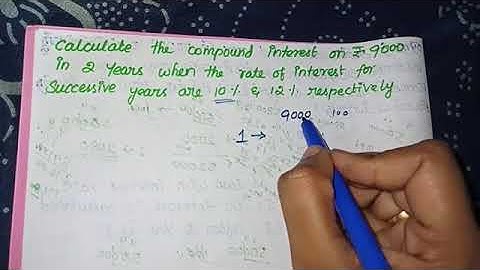 Calculate the compound interest on ₹ 9000
in 2 years when the rate of interest for
Successive years are 10% & 12% respectively
9000 100
1 →